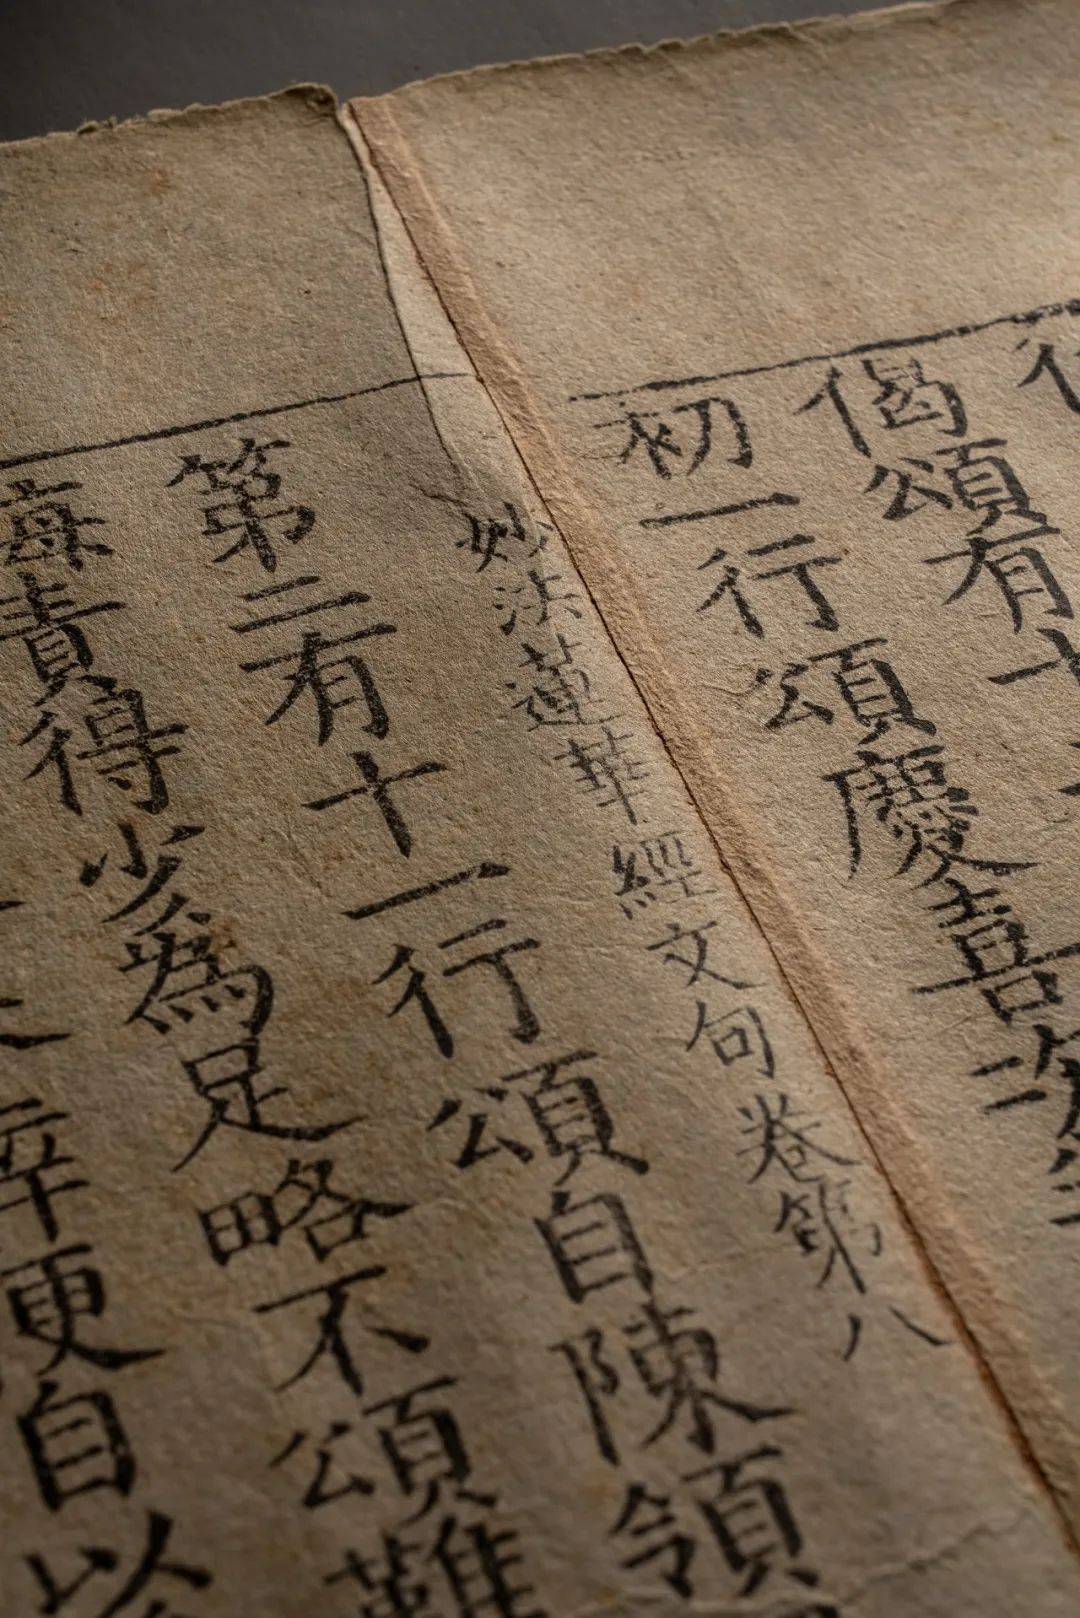 偈頌有十
初一行頌慶喜次
妙法蓮華經文句卷第八
第二有十一行頌自陳領
悔責得少爲足略不頌難
自以